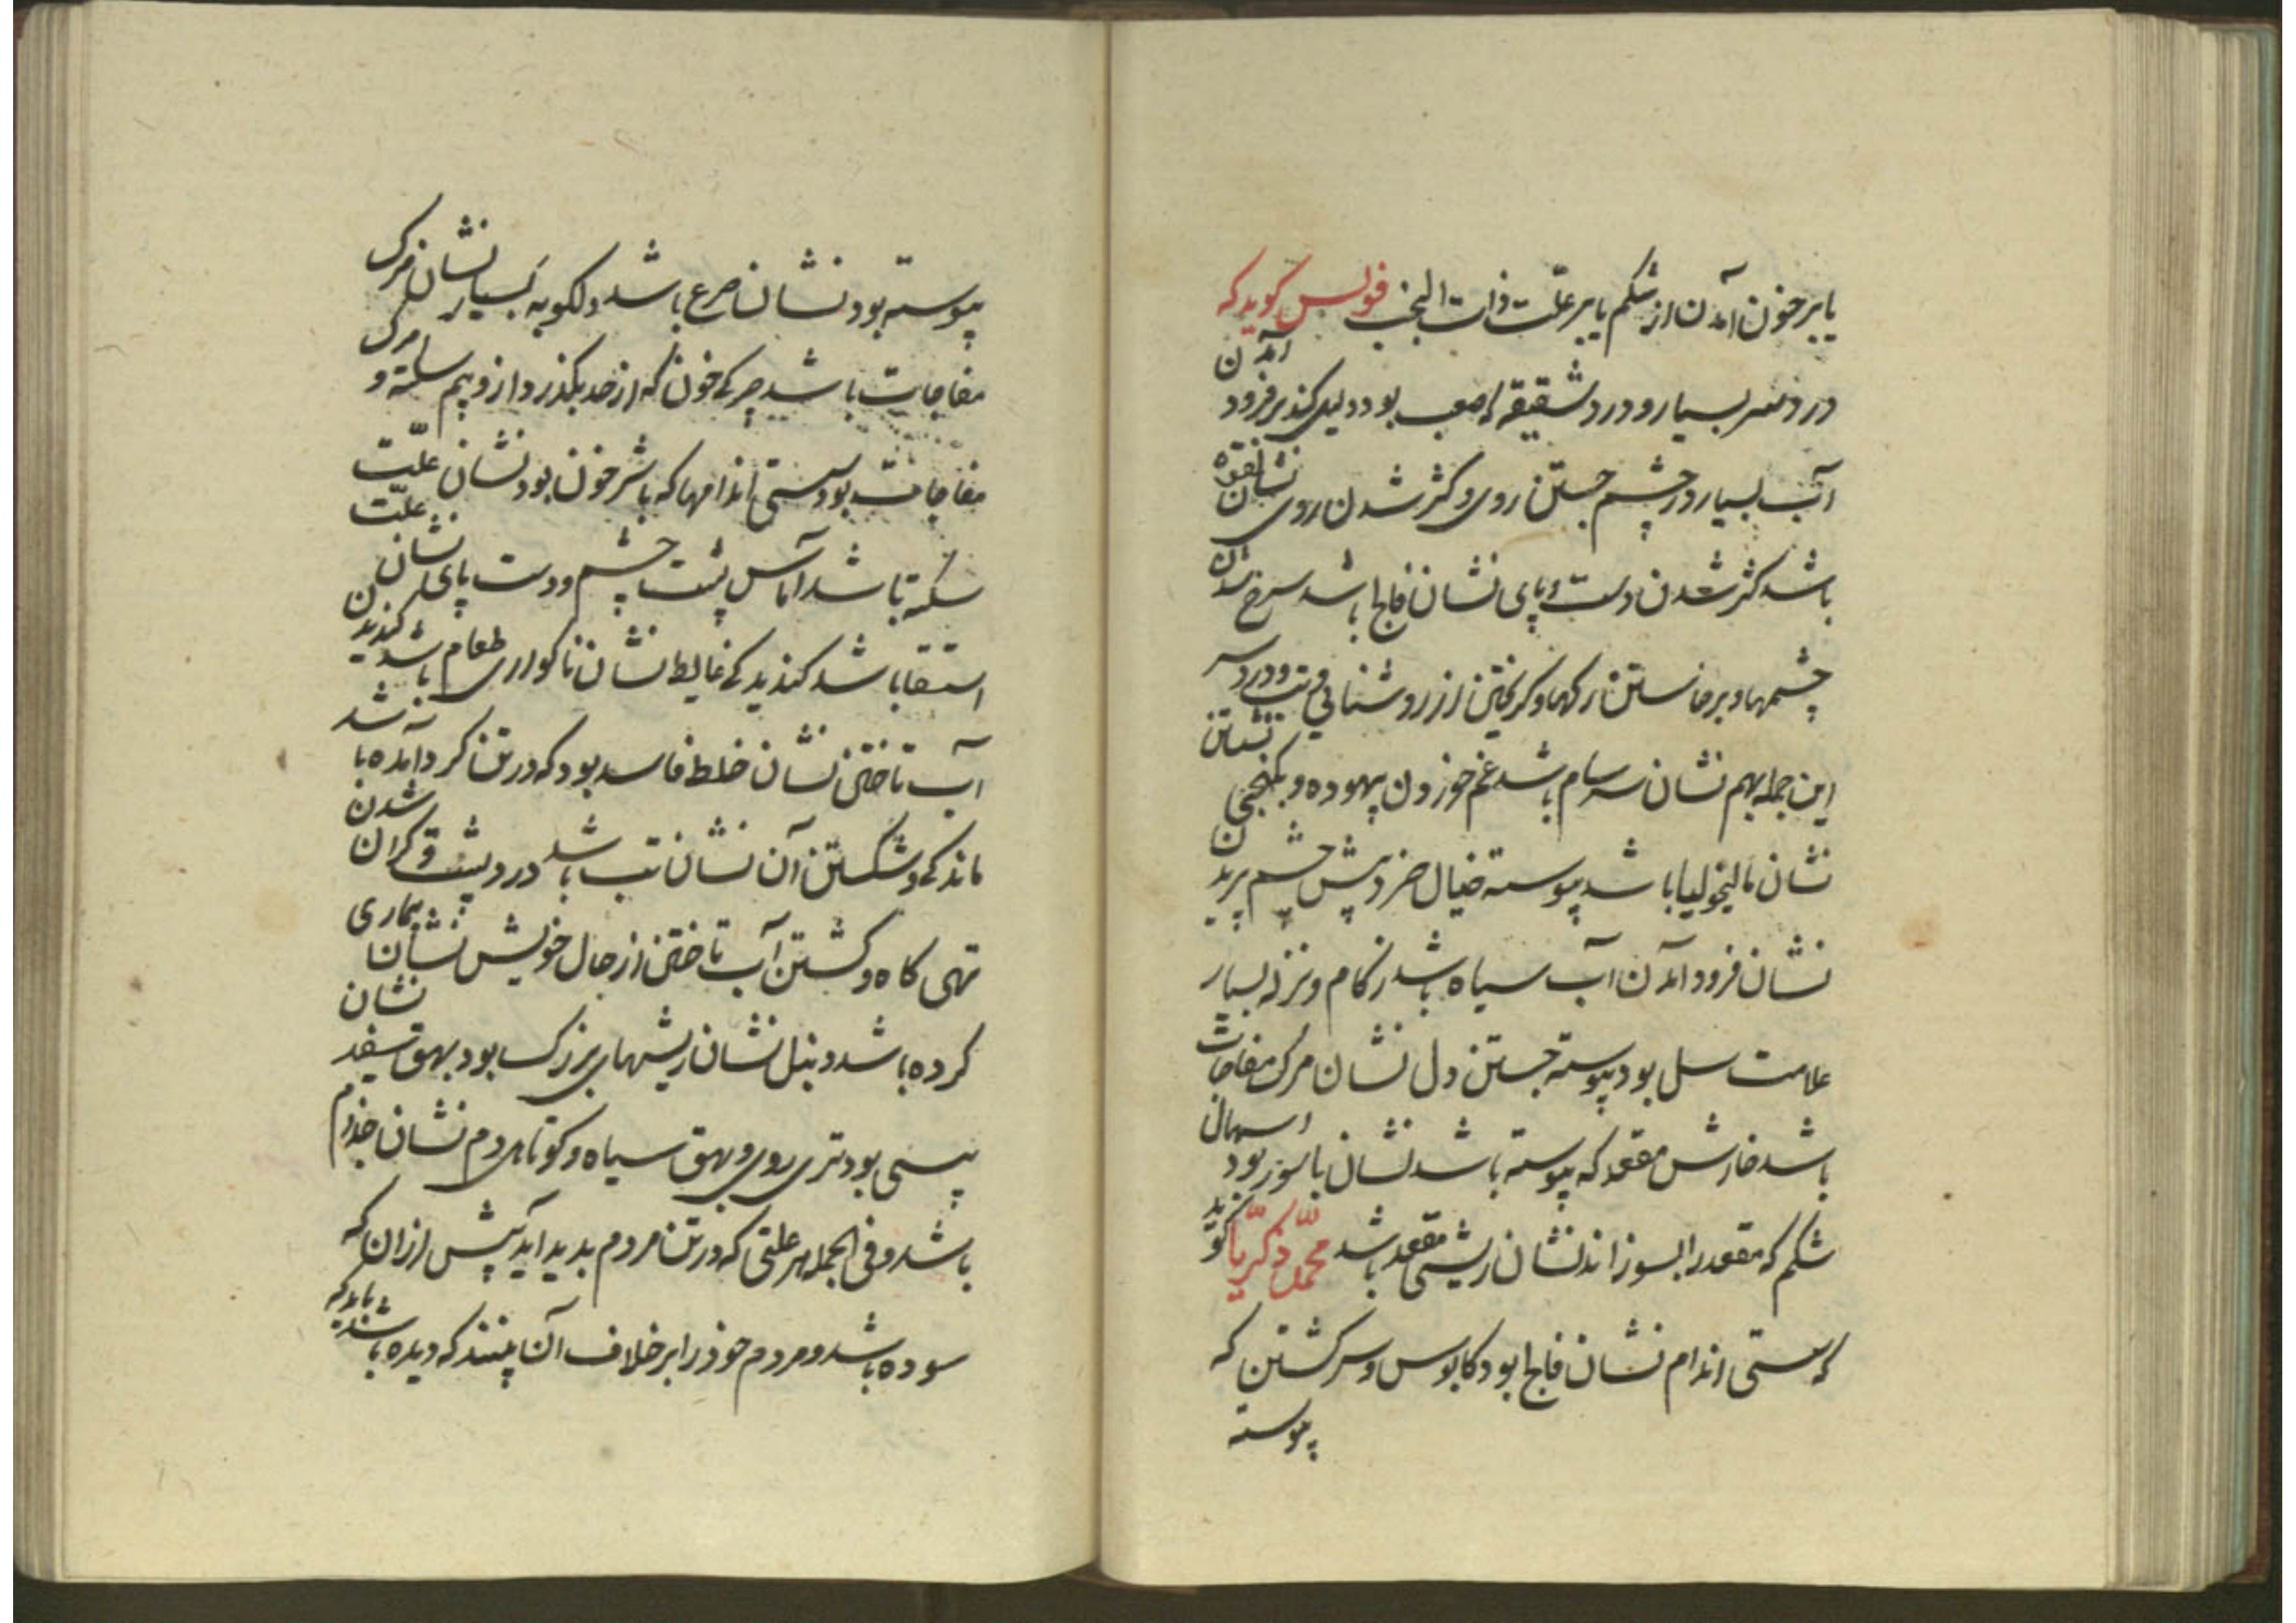 یا بر خون آمدن از شکم یا بر علت ذات الجنب فولس کوید که
درد سر بسیار و درد شقیقه صعب بود دلیل کند بر فرود آمدن
آب بسیار در چشم جستن روی و کژ شدن روی نشان لقوه
باشد کژ شدن دست و پای نشان فالج باشد سرخ شدن
چشمها و برخاستن رکها و کریختن از روشنایی و تب و درد سر
این جمله بهم نشان سرسام باشد غم خوردن بیهوده و بکنجی نشستن
نشان مالیخولیا باشد پیوسته خیال خرد پیش چشم پریدن
نشان فرود آمدن آب سیاه باشد زکام و نزله بسیار
علامت سل بود پیوسته جستن دل نشان مرک مفاجات
باشد خارش مقعد که پیوسته باشد نشان باسور بود اسهال
شکم که مقعد را بسوزاند نشان ریش مقعد باشد محمد زکریا کوید
که سستی اندام نشان فالج بود کابوس و سرکشتن که
پیوسته
پیوسته بود نشان صرع باشد بسیار نشان مرک
مفاجات باشد خون که از حد بکذرد ازو بیم سکته و مرک
مفاجات بود سستی اندامها که با شر خون بود نشان علت
سکته باشد آماس پشت چشم و دست پای نشان علت
استسقا باشد کندیدکی غایط نشان ناکواردن طعام باشد کندیدن
آب تاختن نشان خلط فاسد بود که در تن کرد آمده باشد
ماندکی و شکستن آن نشان تب باشد درد پشت و کران شدن
تهی کاه و کشتن آب تاختن از حال خویش نشان بیماری
کرده باشد دنبل نشان ریشهای بزرک بود بهق سفید نشان
پیسی بود تری روی و بهق سیاه و کوتاهی دم نشان جذام
باشد و فی الجمله هر علتی که در تن مردم بدید آید پیش از آن که
سوده باشد و مردم خود را بر خلاف آن بیند که دیده باشد باید که